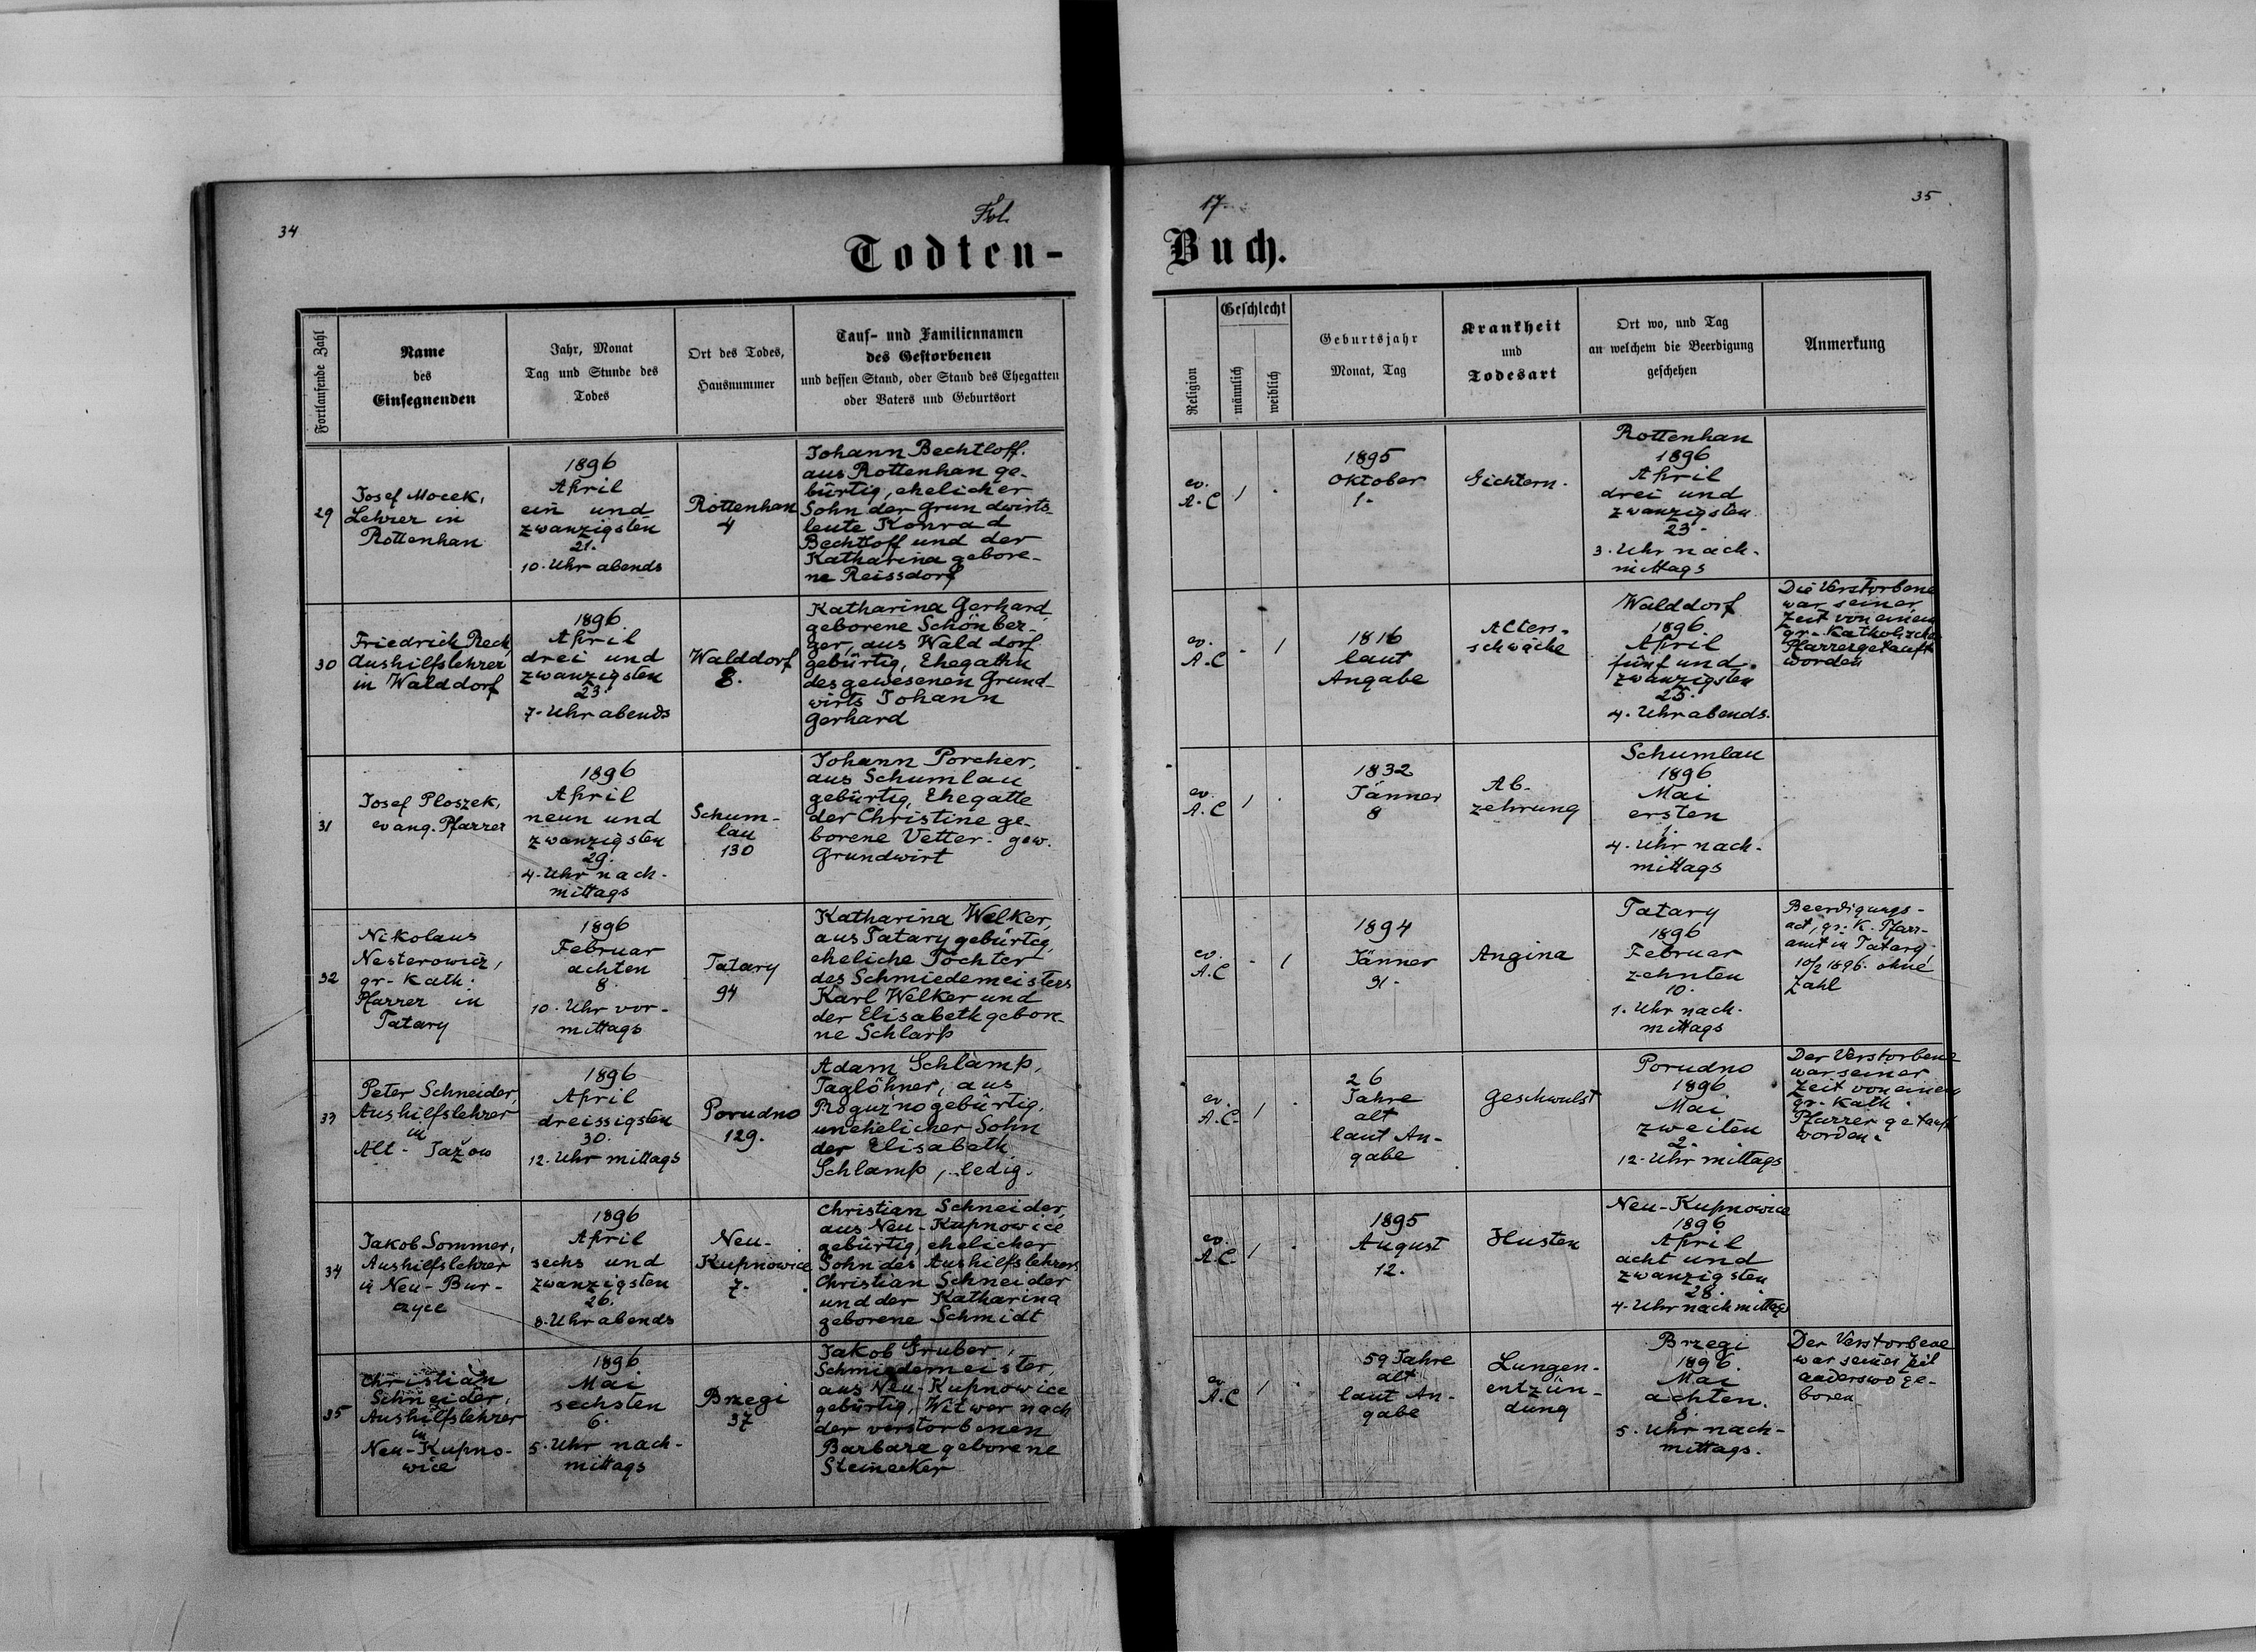 34
Fol.
Todten-
Fortlaufende Zahl
Name
des
Einsegnenden
Jahr, Monat
Tag und Stunde des
Todes
Ort des Todes,
Hausnummer
Tauf- und Familiennamen
des Gestorbenen
und dessen Stand, oder Stand des Ehegatten
oder Vaters und Geburtsort
29
Josef Mocek,
Lehrer in
Rottenhan
1896
April
ein und
zwanzigsten
21.
10. Uhr abends
Rottenhan
4
Johann Bechtloff.
aus Rottenhan ge-
bürtig, ehelicher
Sohn der Grundwirts-
leute Konrad
Bechtloff und der
Katharina gebore-
ne Reissdorf
30
Friedrich Reck
Aushilfslehrer
in Walddorf
1896
April
drei und
zwanzigsten
23.
7. Uhr abends
Walddorf
8.
Katharina Gerhard,
geborene Schönber-
ger, aus Walddorf
gebürtig, Ehegattin
des gewesenen Grund-
wirts Johann
Gerhard
31
Josef Ploszek,
evang. Pfarrer
1896
April
neun und
zwanzigsten
29.
4. Uhr nach-
mittags
Schum-
lau
130
Johann Porcher,
aus Schumlau
gebürtig, Ehegatte
der Christine ge-
borene Vetter. gew.
Grundwirt
32
Nikolaus
Nesterowicz,
gr.-kath.
Pfarrer in
Tatary
1896
Februar
achten
8.
10. Uhr vor-
mittags
Tatary
94
Katharina Welker,
aus Tatary gebürtig,
eheliche Tochter
des Schmiedemeisters
Karl Welker und
der Elisabeth gebore-
ne Schlarp
33
Peter Schneider,
Aushilfslehrer
in
Alt-Jażow
1896
April
dreissigsten
30.
12. Uhr mittags
Porudno
129.
Adam Schlamp,
Taglöhner, aus
Roguźno gebürtig,
unehelicher Sohn
der Elisabeth
Schlamp, ledig.
34
Jakob Sommer,
Aushilfslehrer
in Neu-Bur-
czyce
1896
April
sechs und
zwanzigsten
26.
8. Uhr abends
Neu-
Kupnowice
7.
Christian Schneider,
aus Neu-Kupnowice
gebürtig, ehelicher
Sohn des Aushilfslehrers
Christian Schneider
und der Katharina
geborene Schmidt
35
Christian
Schneider,
Aushilfslehrer
in
Neu-Kupno-
wice
1896
Mai
sechsten
6.
5. Uhr nach-
mittags
Brzegi
37
Jakob Gruber,
Schmiedemeister,
aus Neu-Kupnowice
gebürtig, Witwer nach
der verstorbenen
Barbara geborene
Steinecker
17.
35
Buch.
Religion
Geschlecht
männlich
weiblich
Geburtsjahr
Monat, Tag
Krankheit
und
Todesart
Ort wo, und Tag
an welchem die Beerdigung
geschehen
Anmerkung
ev.
A.C
1
1895
Oktober
1.
Gichtern.
Rottenhan
1896
April
drei und
zwanzigsten
23.
3. Uhr nach-
mittags
ev.
A.C
1
1816
laut
Angabe
Alters-
schwäche
Walddorf
1896
April
fünf und
zwanzigsten
25.
4. Uhr abends.
Die Verstorbene
war seiner
Zeit von einem
gr.-katholischen
Pfarrer getauft
worden
ev.
A.C
1
1832
Jänner
8
Ab-
zehrung
Schumlau
1896
Mai
ersten
1.
4. Uhr nach-
mittags
ev.
A.C
1
1894
Jänner
Angina
Tatary
1896
Februar
zehnten
10.
1. Uhr nach-
mittags
Beerdigungs-
act, gr. K. Pfarr-
amt in Tatary
10/2 1896. ohne
Zahl
ev.
A.C.
1
26
Jahre
alt
laut An-
gabe
Geschwulst
Porudno
1896
Mai
zweiten
2.
12. Uhr mittags
Der Verstorbene
war seiner
Zeit von einem
gr.-kath.
Pfarrer getauft
worden.
ev.
A.C
1
1895
August
12.
Husten
Neu-Kupnowice
1896
April
acht und
zwanzigsten
28.
4. Uhr nachmittags
ev.
A.C
1
59 Jahre
alt
laut An-
gabe
Lungen-
entzün-
dung
Brzegi
1896.
Mai
achten.
8.
5. Uhr nach-
mittags.
Der Verstorbene
war seiner Zeit
anderswo ge-
boren